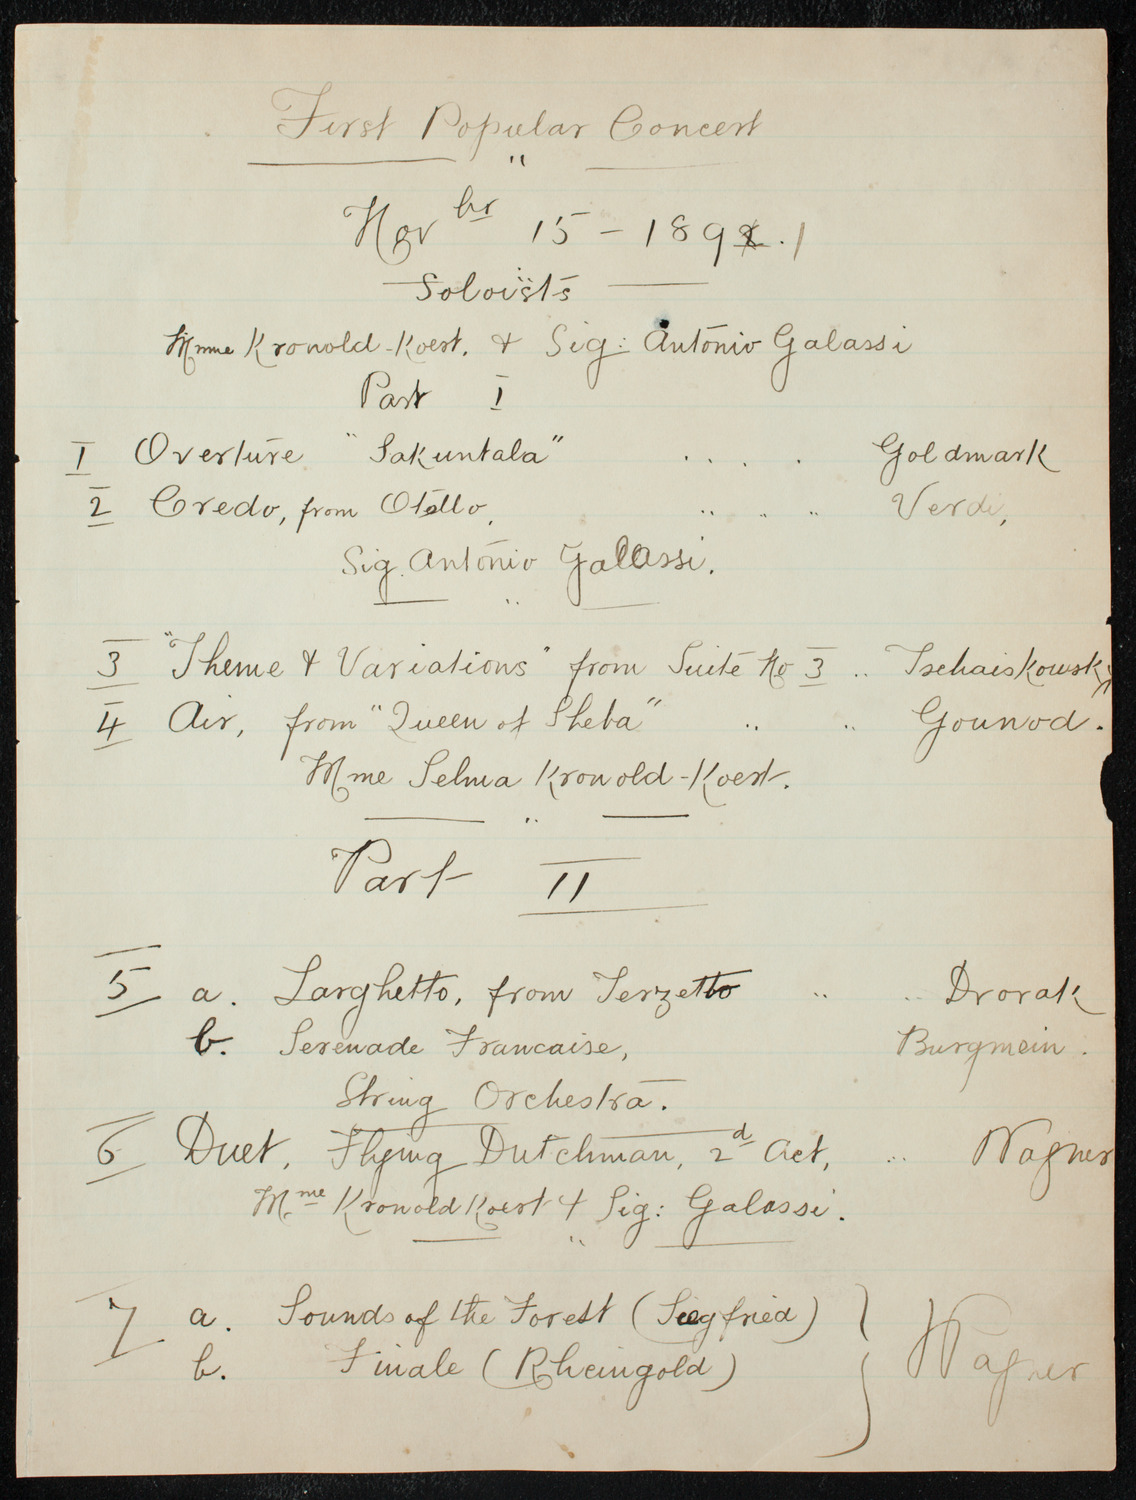 First Popular Concert
"
Novbr 15 - 1892. 1
Soloists
Mme Kronold-Koert. & Sig: Antonio Galassi
Part I
1 Overture "Sakuntala" . . . . Goldmark
2 Credo, from Otello, .. .. .. Verdi,
Sig. Antonio Galassi.
3 "Theme & Variations" from Suite No 3 .. Tschaiskowsky
4 Air, from "Queen of Sheba" .. .. Gounod.
Mme Selma Kronold-Koert.
Part II
5 a. Larghetto, from Terzetto .. .. Dvorak
b. Serenade Francaise, Burgmein.
String Orchestra.
6 Duet, Flying Dutchman, 2d Act, .. Wagner
Mme Kronold Koert & Sig: Galassi.
7 a. Sounds of the Forest (Siegfried)
b. Finale (Rheingold) } Wagner